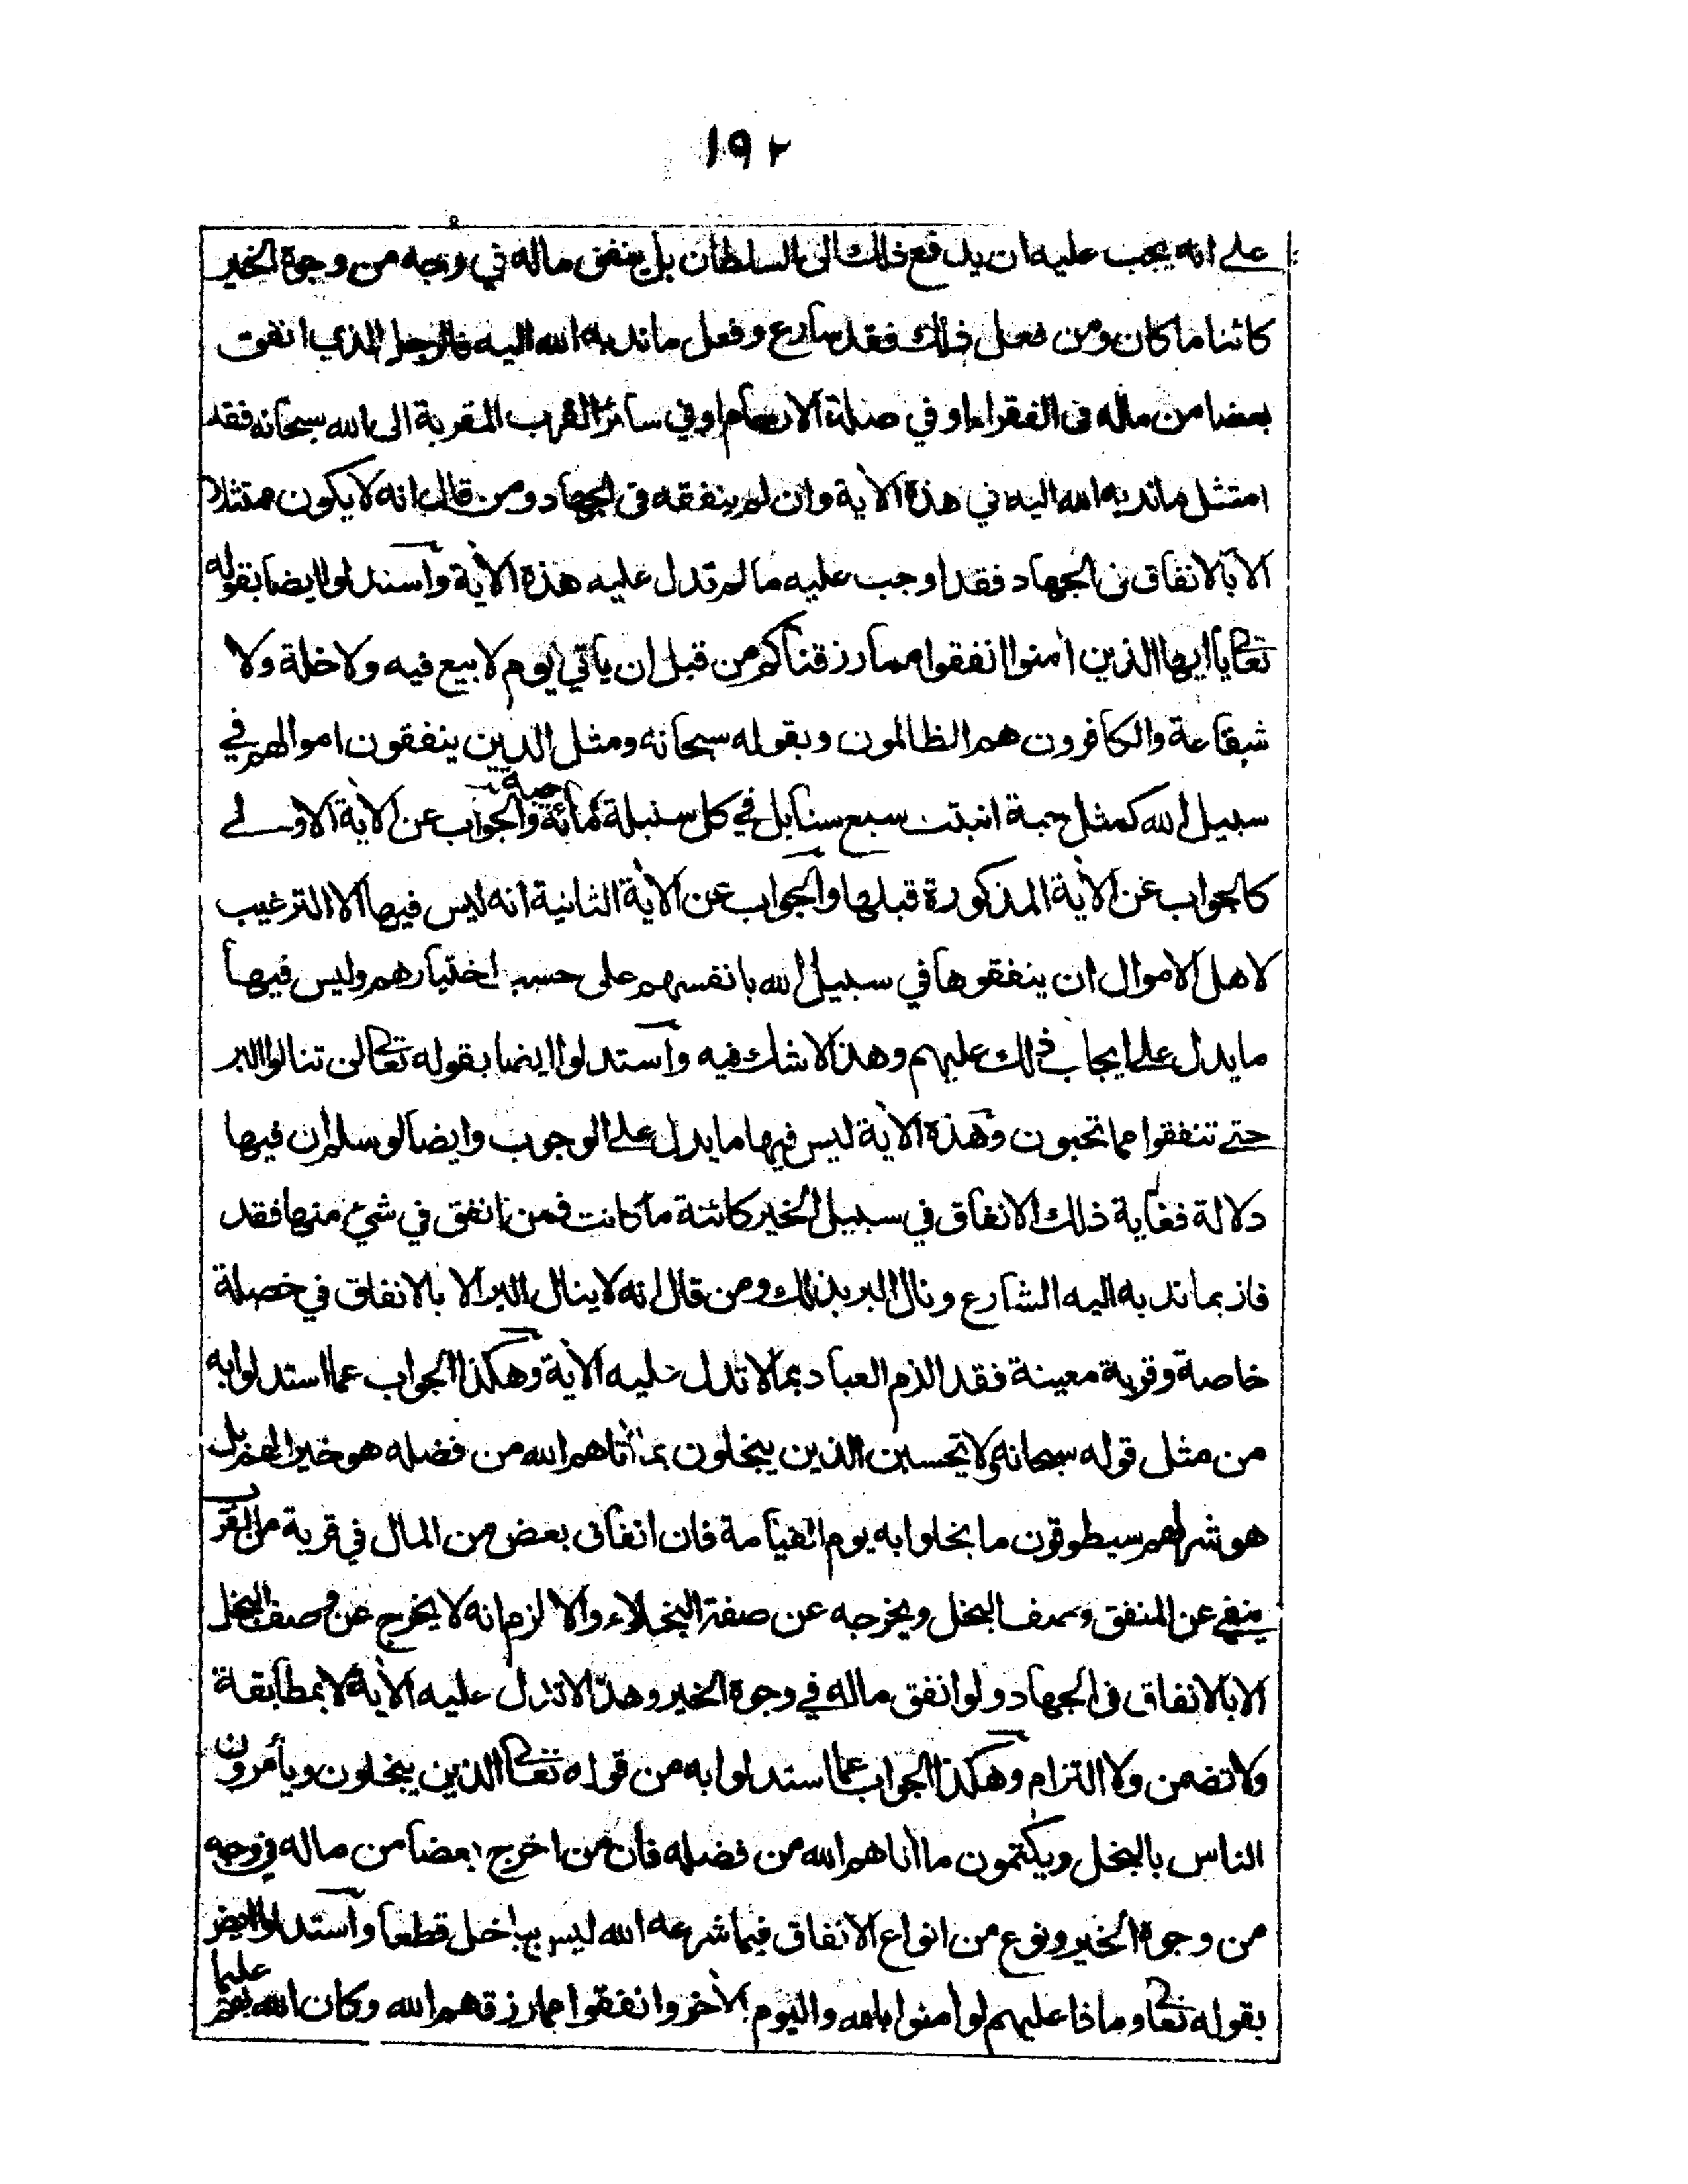 ١٩٢
على انه يجب عليه ان يدفع ذلك الى السلطان بل ينفق ماله في وجه من وجوه الخير
كائنا ما كان ومن فعل ذلك فقد سارع وفعل ما ندبه الله اليه فالرجل الذي انفق
بعضا من ماله في الفقراء او في صلة الارحام او في سائر القرب المقربة الى الله سبحانه فقد
امتثل ما ندبه الله اليه في هذه الآية وان لم ينفقه في الجهاد ومن قال انه لا يكون ممتثلا
الا بالانفاق في الجهاد فقد اوجب عليه ما لم تدل عليه هذه الآية واستدلوا ايضا بقوله
تعالى يا ايها الذين امنوا انفقوا مما رزقناكم من قبل ان ياتي يوم لا بيع فيه ولا خلة ولا
شفاعة والكافرون هم الظالمون وبقوله سبحانه ومثل الذين ينفقون اموالهم في
سبيل الله كمثل حبة انبتت سبع سنابل في كل سنبلة مائة حبة والجواب عن الآية الاولى
كالجواب عن الآية المذكورة قبلها والجواب عن الآية الثانية انه ليس فيها الا الترغيب
لاهل الاموال ان ينفقوها في سبيل الله بانفسهم على حسب اختيارهم وليس فيها
ما يدل على ايجاب ذلك عليهم وهذا لا شك فيه واستدلوا ايضا بقوله تعالى لن تنالوا البر
حتى تنفقوا مما تحبون وهذه الآية ليس فيها ما يدل على الوجوب وايضا لو سلم ان فيها
دلالة فغاية ذلك الانفاق في سبيل الخير كائنة ما كانت فمن انفق في شئ منها فقد
فاز بما ندبه اليه الشارع ونال البر بذلك ومن قال انه لا ينال البر الا بالانفاق في خصلة
خاصة وقربة معينة فقد الزم العباد بما لا تدل عليه الآية وهكذا الجواب عما استدلوا به
من مثل قوله سبحانه ولا تحسبن الذين يبخلون بما آتاهم الله من فضله هو خيرا لهم بل
هو شر لهم سيطوقون ما بخلوا به يوم القيامة فان انفاق بعض من المال في قربة من القرب
ينفي عن المنفق وصف البخل ويخرجه عن صفة البخلاء والا لزم انه لا يخرج عن وصف البخل
الا بالانفاق في الجهاد ولو انفق ماله في وجوه الخير وهذا لا تدل عليه الآية لا بمطابقة
ولا تضمن ولا التزام وهكذا الجواب عما استدلوا به من قوله تعالى الذين يبخلون ويأمرون
الناس بالبخل ويكتمون ما أتاهم الله من فضله فان من اخرج بعضا من ماله في وجه
من وجوه الخير ونوع من انواع الانفاق فيما شرعه الله ليس بباخل قطعا واستدلوا ايضا
بقوله تعالى وماذا عليهم لو امنوا بالله واليوم الآخر وانفقوا مما رزقهم الله وكان الله بهم عليما